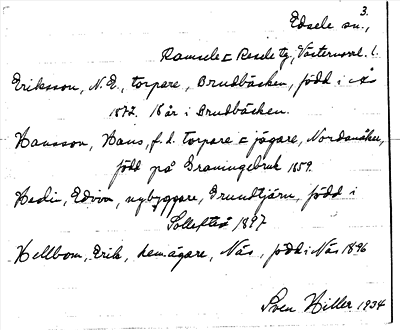 3.
Edsele sn.,
Ramsele o Resele tg, Västernorrl. l.
Eriksson, N.E., torpare, Brudbäcken, född i Ås
1877. 18 år i Brudbäcken.
Hansson, Hans, f.d. torpare o jägare, Nordanåker,
född på Graningebruk 1859.
Hedin, Edvin, nybyggare, Grundtjärn, född i
Sollefteå 1897
Hellbom, Erik, hem.ägare, Näs, född i Näs 1896
Sven Hiller 1934